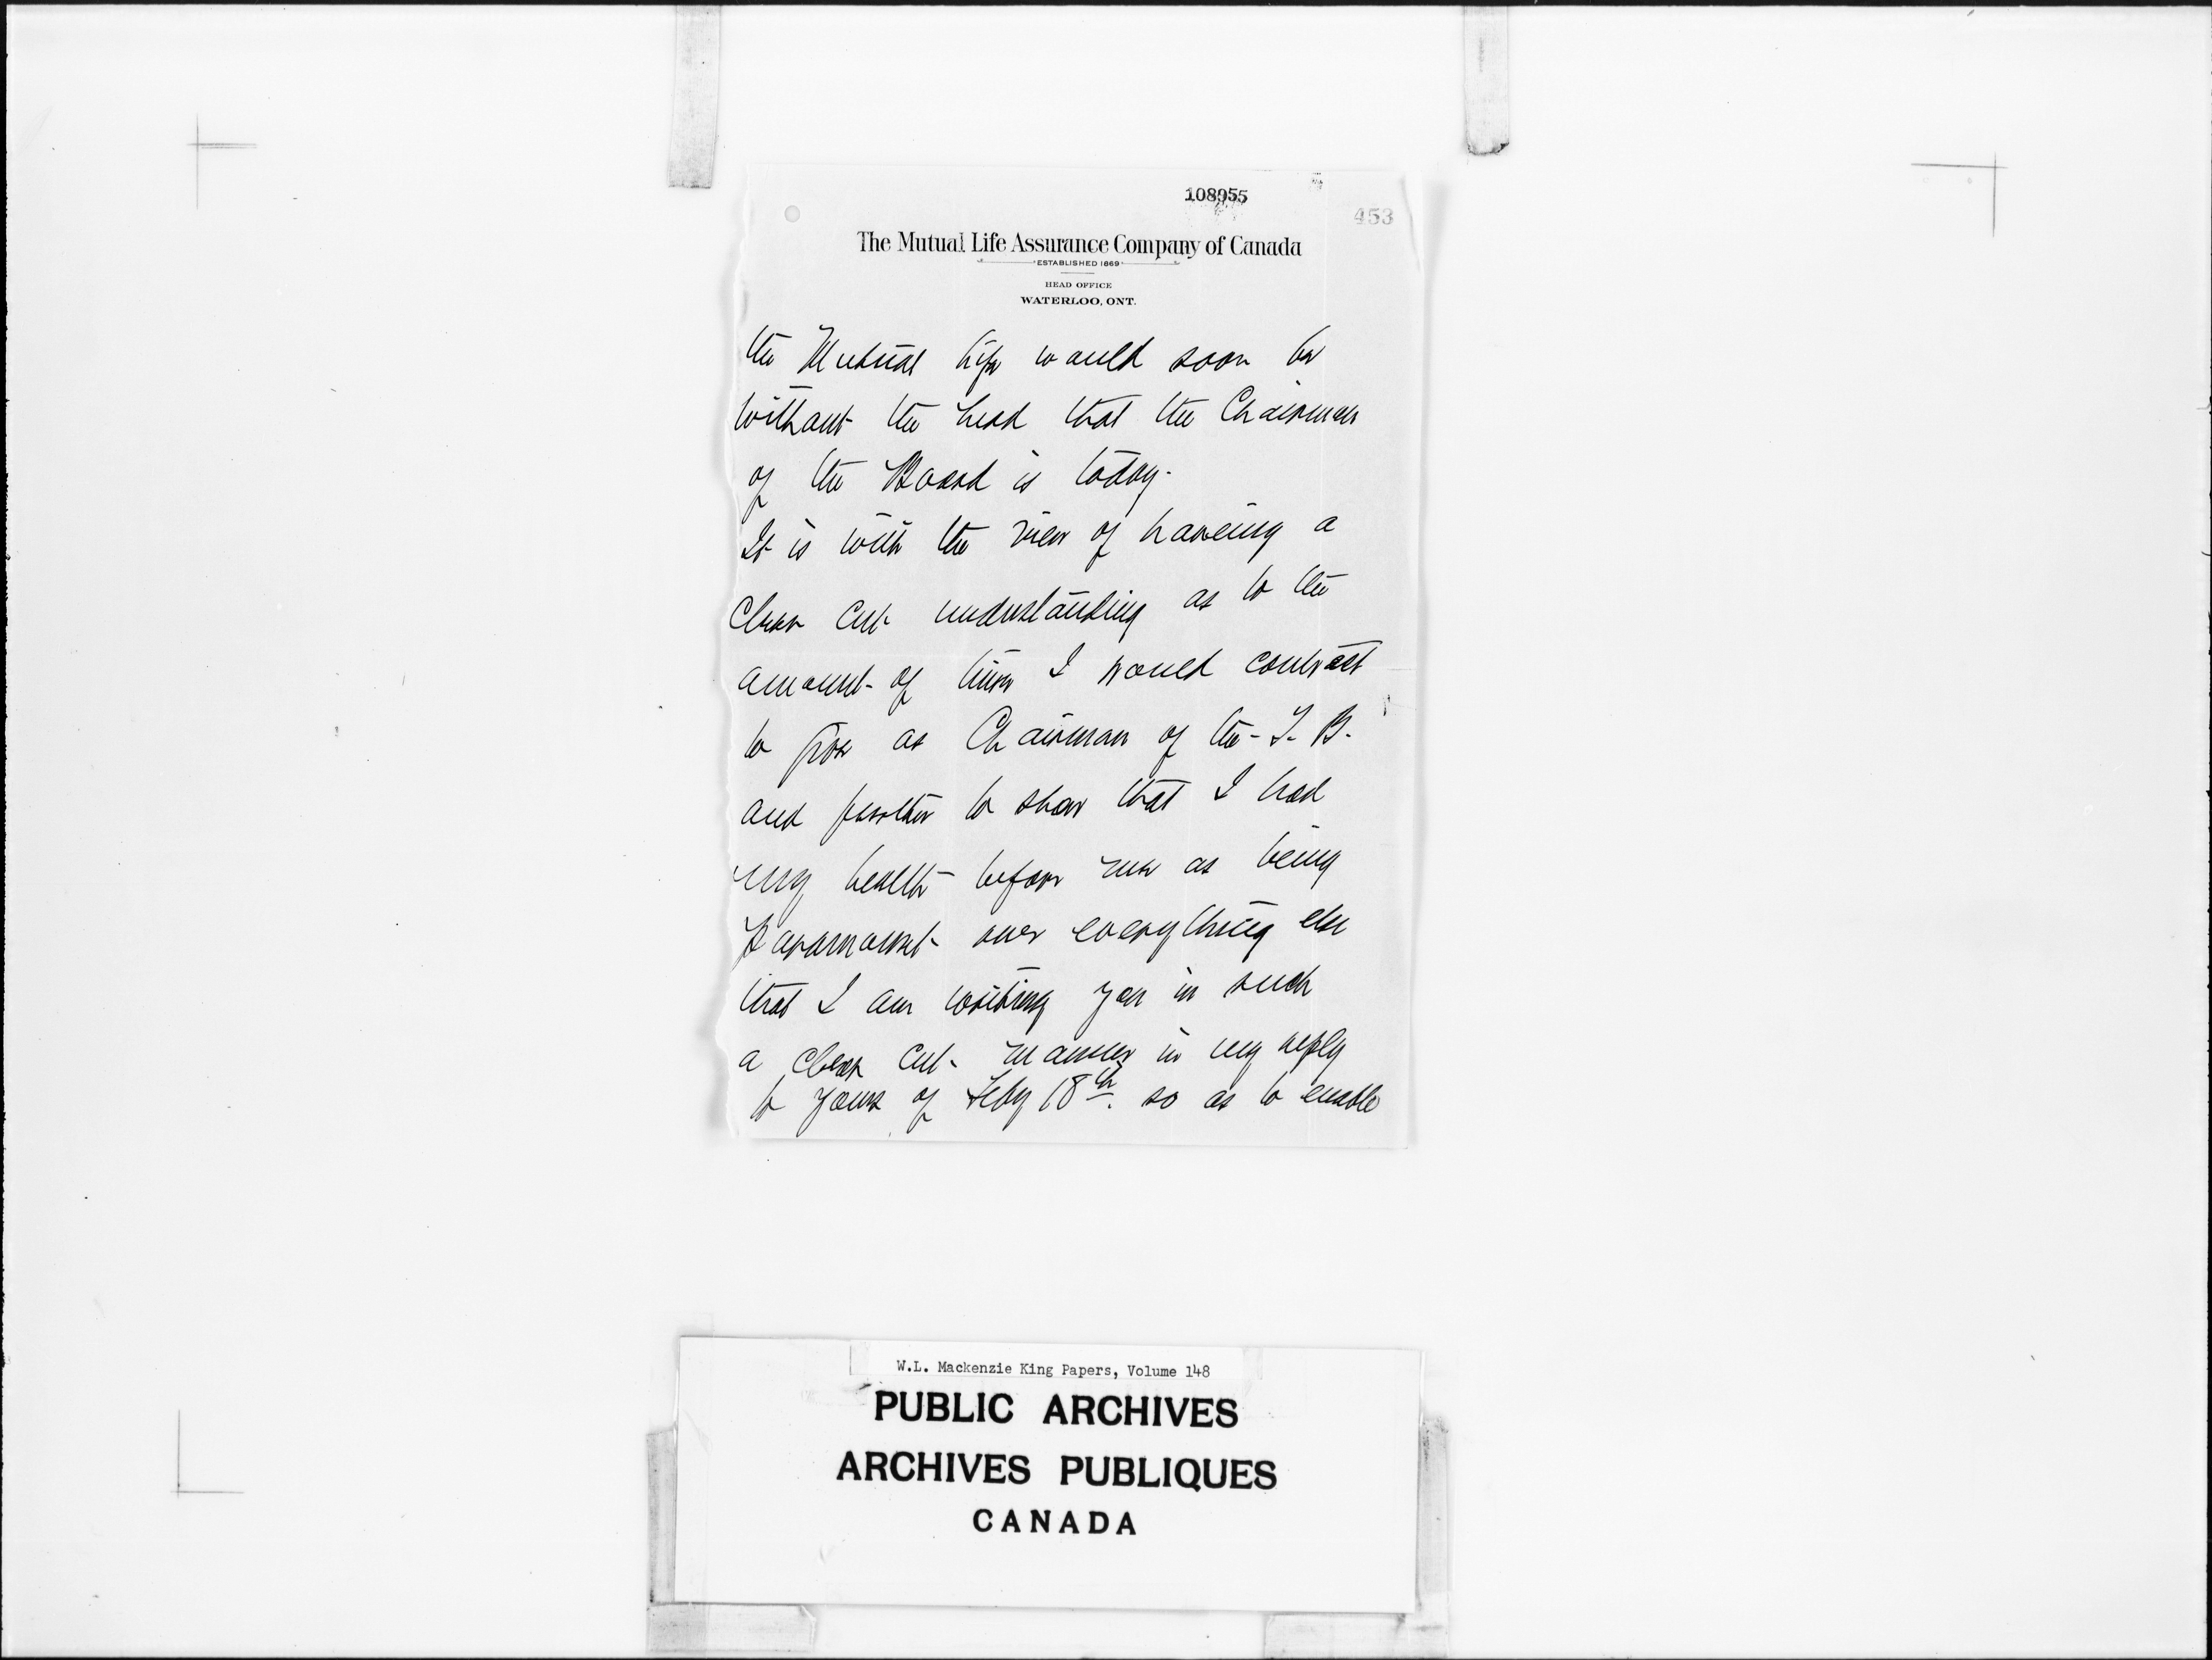 108955
453
The Mutual Life Assurance Company of Canada
ESTABLISHED 1869
HEAD OFFICE
WATERLOO, ONT.
the Mutual Life would soon be
without the head that the Chairman
of the Board is today.
It is with the view of haveing a
clear cut understanding as to the
amount of time I would contract
to give as Chairman of the T. B.
and further to show that I had
my health before me as being
paramount over everything else
that I am writing you in such
a clear cut manner in my reply
to yours of Feby 18th. so as to enable
W.L. Mackenzie King Papers, Volume 148
PUBLIC ARCHIVES
ARCHIVES PUBLIQUES
CANADA